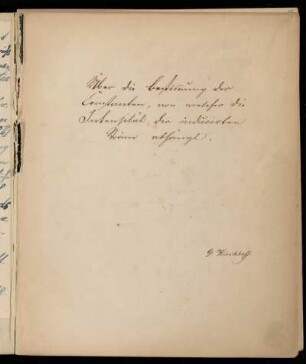 Über die Bestimmung der
Constanten, von welcher die
Intensität der inducirten
Ströme abhängt.
G Kirchhoff